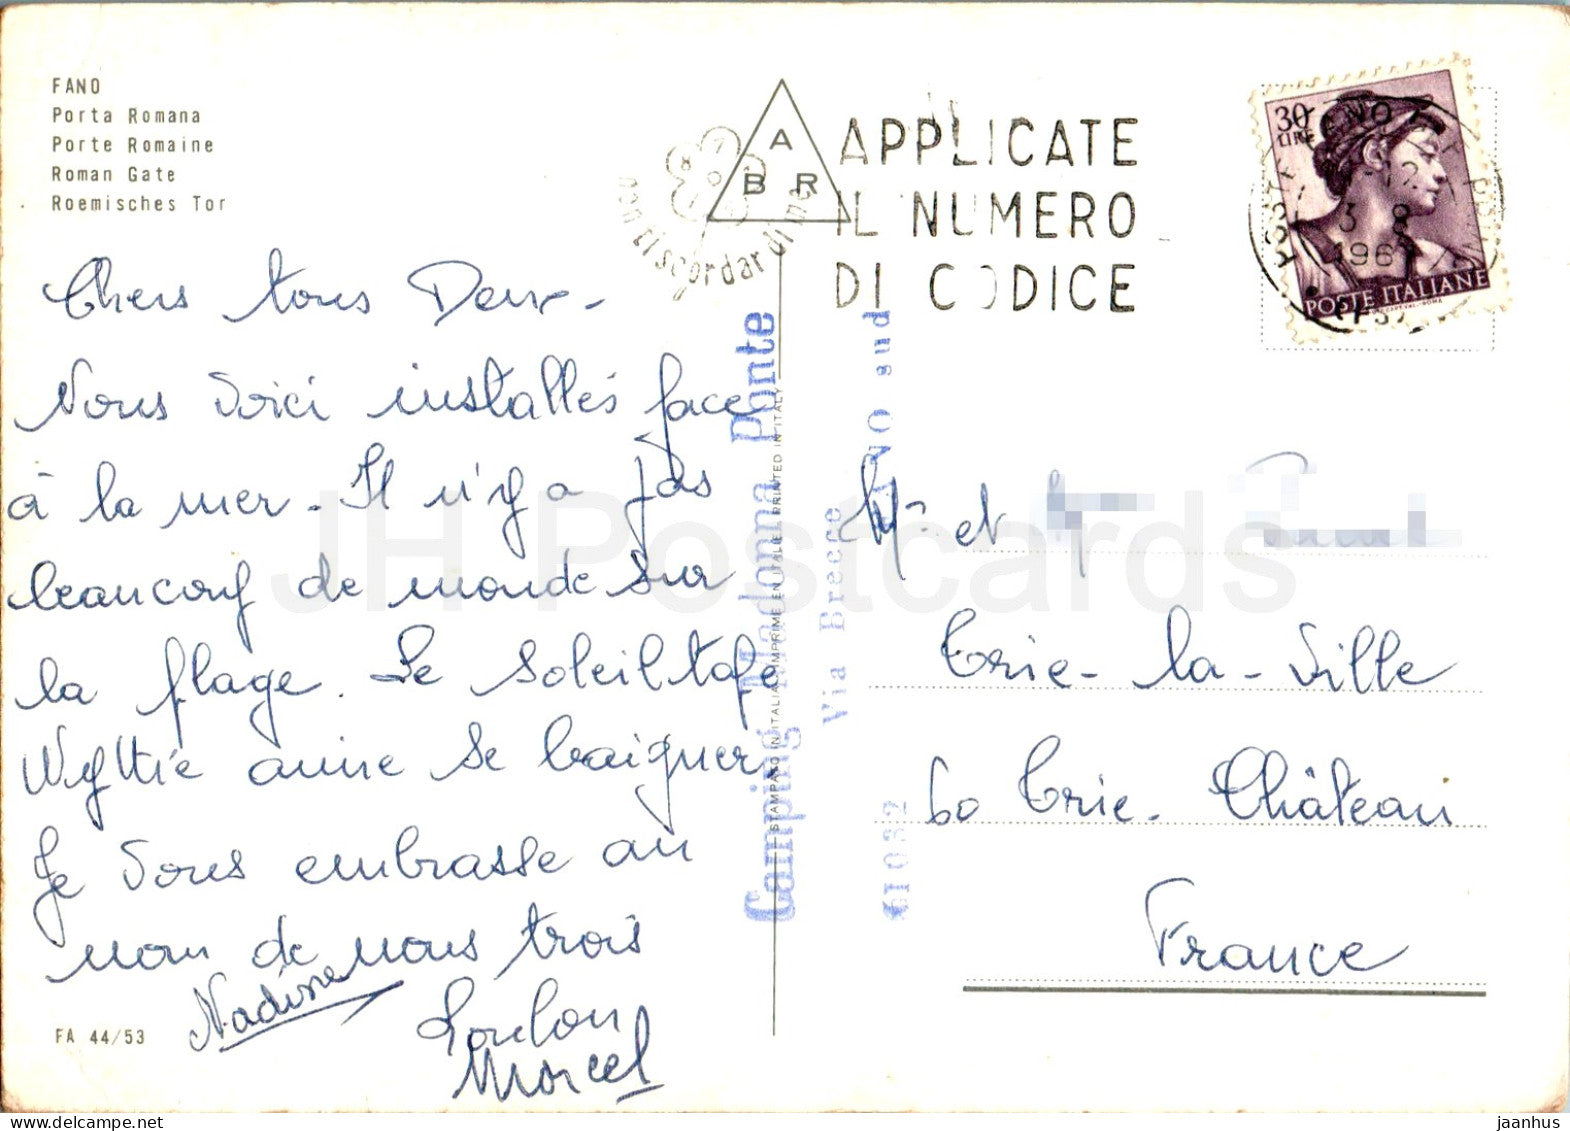 FANO
Porta Romana
Porte Romaine
Roman Gate
Roemisches Tor
Chers tous Deux-
Nous voici installés face
à la mer. Il n'y a pas
beaucoup de monde sur
la plage. Le soleil tape
aime se baigner
Je vous embrasse au
nom de nous trois
Nadine
Loulou
Marcel
FA 44/53
A
B R
non ti scordar di me
APPLICATE
IL NUMERO
DI CODICE
30
LIRE
POSTE ITALIANE
3 8
196
Camping Madonna Ponte
Via Brecce
FANO sud
61032
STAMPATO IN ITALIA - IMPRIME EN ITALIE - PRINTED IN ITALY
Mr et
Trie-la-Ville
60 Trie-Château
France
JH Postcards
www.delcampe.net
jaanhus